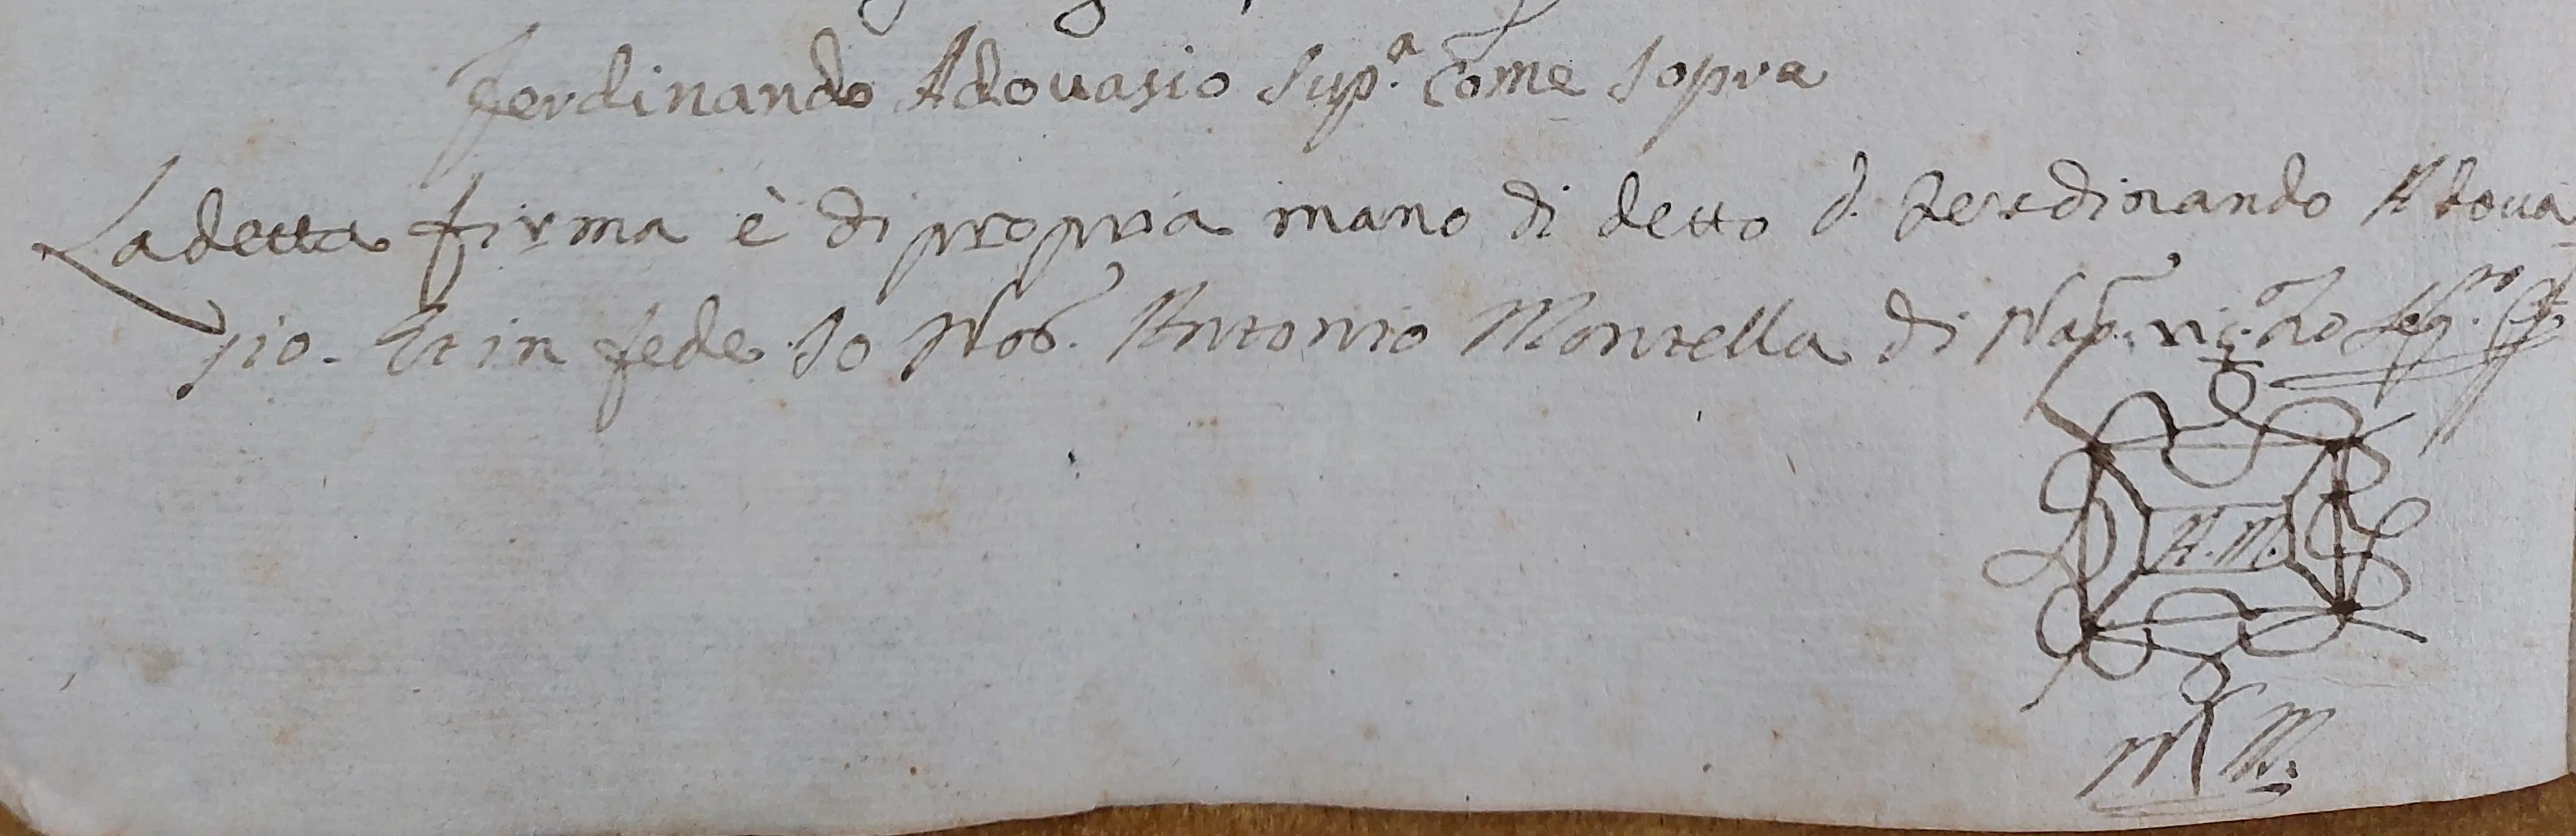 Ferdinando Adouasio Sup.ᵃ Come sopra
La detta firma è di propria mano di detto d. Ferdinando Adoua
sio. Et in fede Io Noᵗ. Antonio Montella di Nap.
A.M.